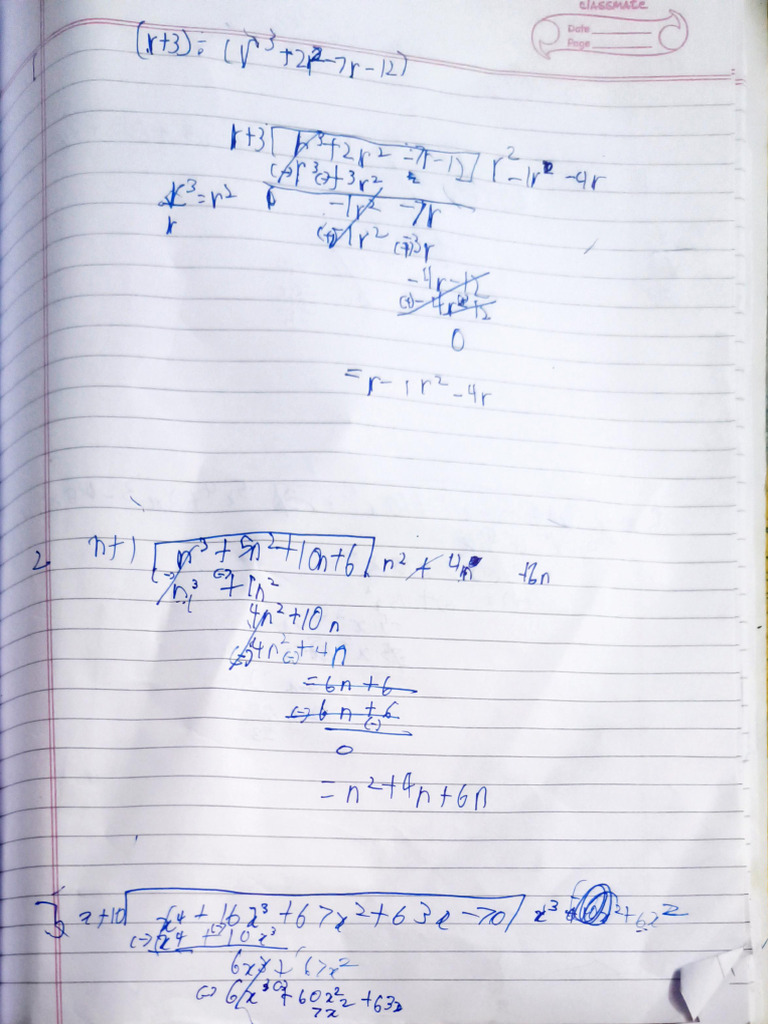 CLASSMATE
Date
Page
(r+3) ÷ (r³+2r²-7r-12)
r+3 r³+2r²-7r-12 r²-1r-4r
(-)r³(-)+3r²
r³=r² 0 -1r² -7r
r (+)-1r² (+)-3r
-4r-12
(+)-4r-12
0
= r-1r²-4r
2. n+1 n³+5n²+10n+6 n²+4n +6n
(-)n³ (-)+1n²
4n²+10n
(-)4n²(-)+4n
=6n+6
(-)6n+6
(-)
0
= n²+4n+6n
3 x+10 x⁴+16x³+67x²+63x-70 x³ +6x²
(-)x⁴ (-)+10x³
6x³+67x²
(-)6x³(-)+60x²
7x² +63x